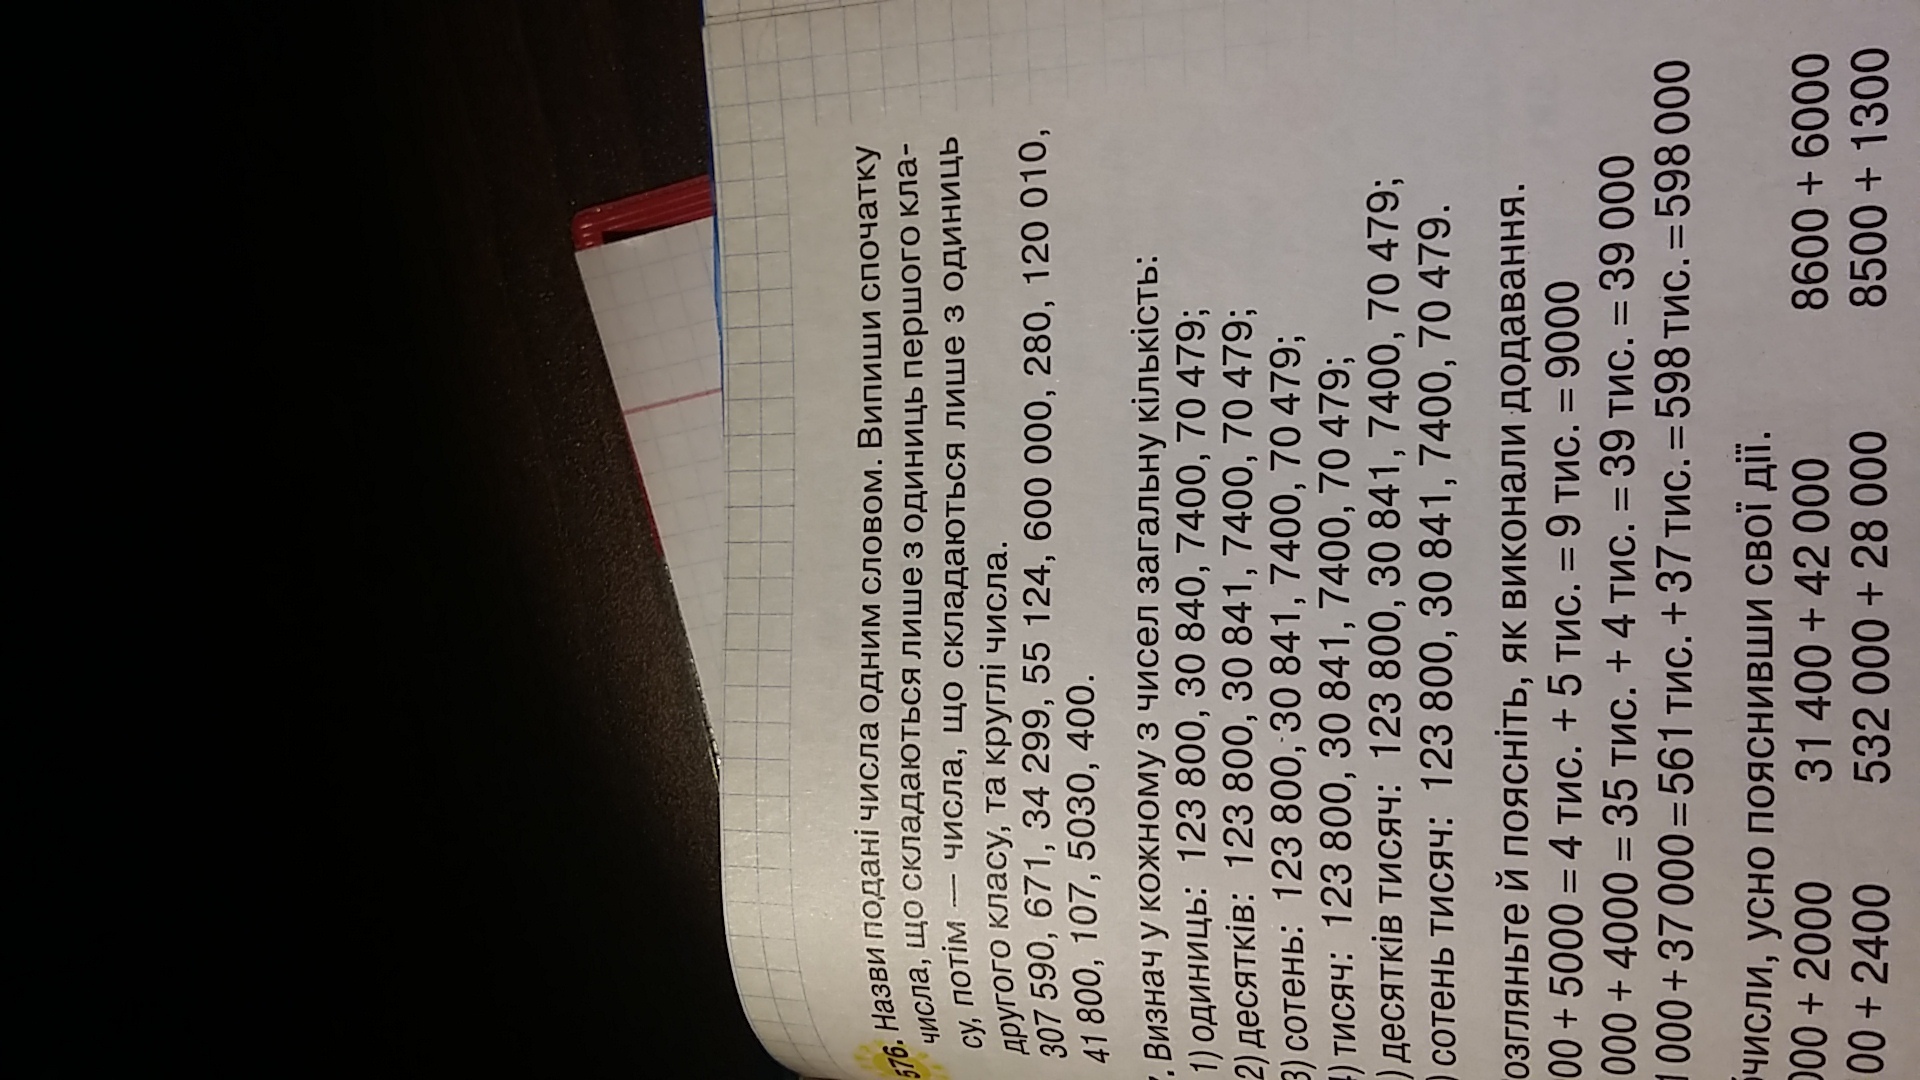 576. Назви подані числа одним словом. Випиши спочатку
числа, що складаються лише з одиниць першого кла-
су, потім — числа, що складаються лише з одиниць
другого класу, та круглі числа.
307 590, 671, 34 299, 55 124, 600 000, 280, 120 010,
41 800, 107, 5030, 400.
. Визнач у кожному з чисел загальну кількість:
1) одиниць: 123 800, 30 840, 7400, 70 479;
2) десятків: 123 800, 30 841, 7400, 70 479;
3) сотень: 123 800, 30 841, 7400, 70 479;
4) тисяч: 123 800, 30 841, 7400, 70 479;
) десятків тисяч: 123 800, 30 841, 7400, 70 479;
) сотень тисяч: 123 800, 30 841, 7400, 70 479.
озгляньте й поясніть, як виконали додавання.
00 + 5000 = 4 тис. + 5 тис. = 9 тис. = 9000
000 + 4000 = 35 тис. + 4 тис. = 39 тис. = 39 000
1 000 + 37 000 = 561 тис. + 37 тис. = 598 тис. = 598 000
числи, усно пояснивши свої дії.
000 + 2000 31 400 + 42 000 8600 + 6000
00 + 2400 532 000 + 28 000 8500 + 1300